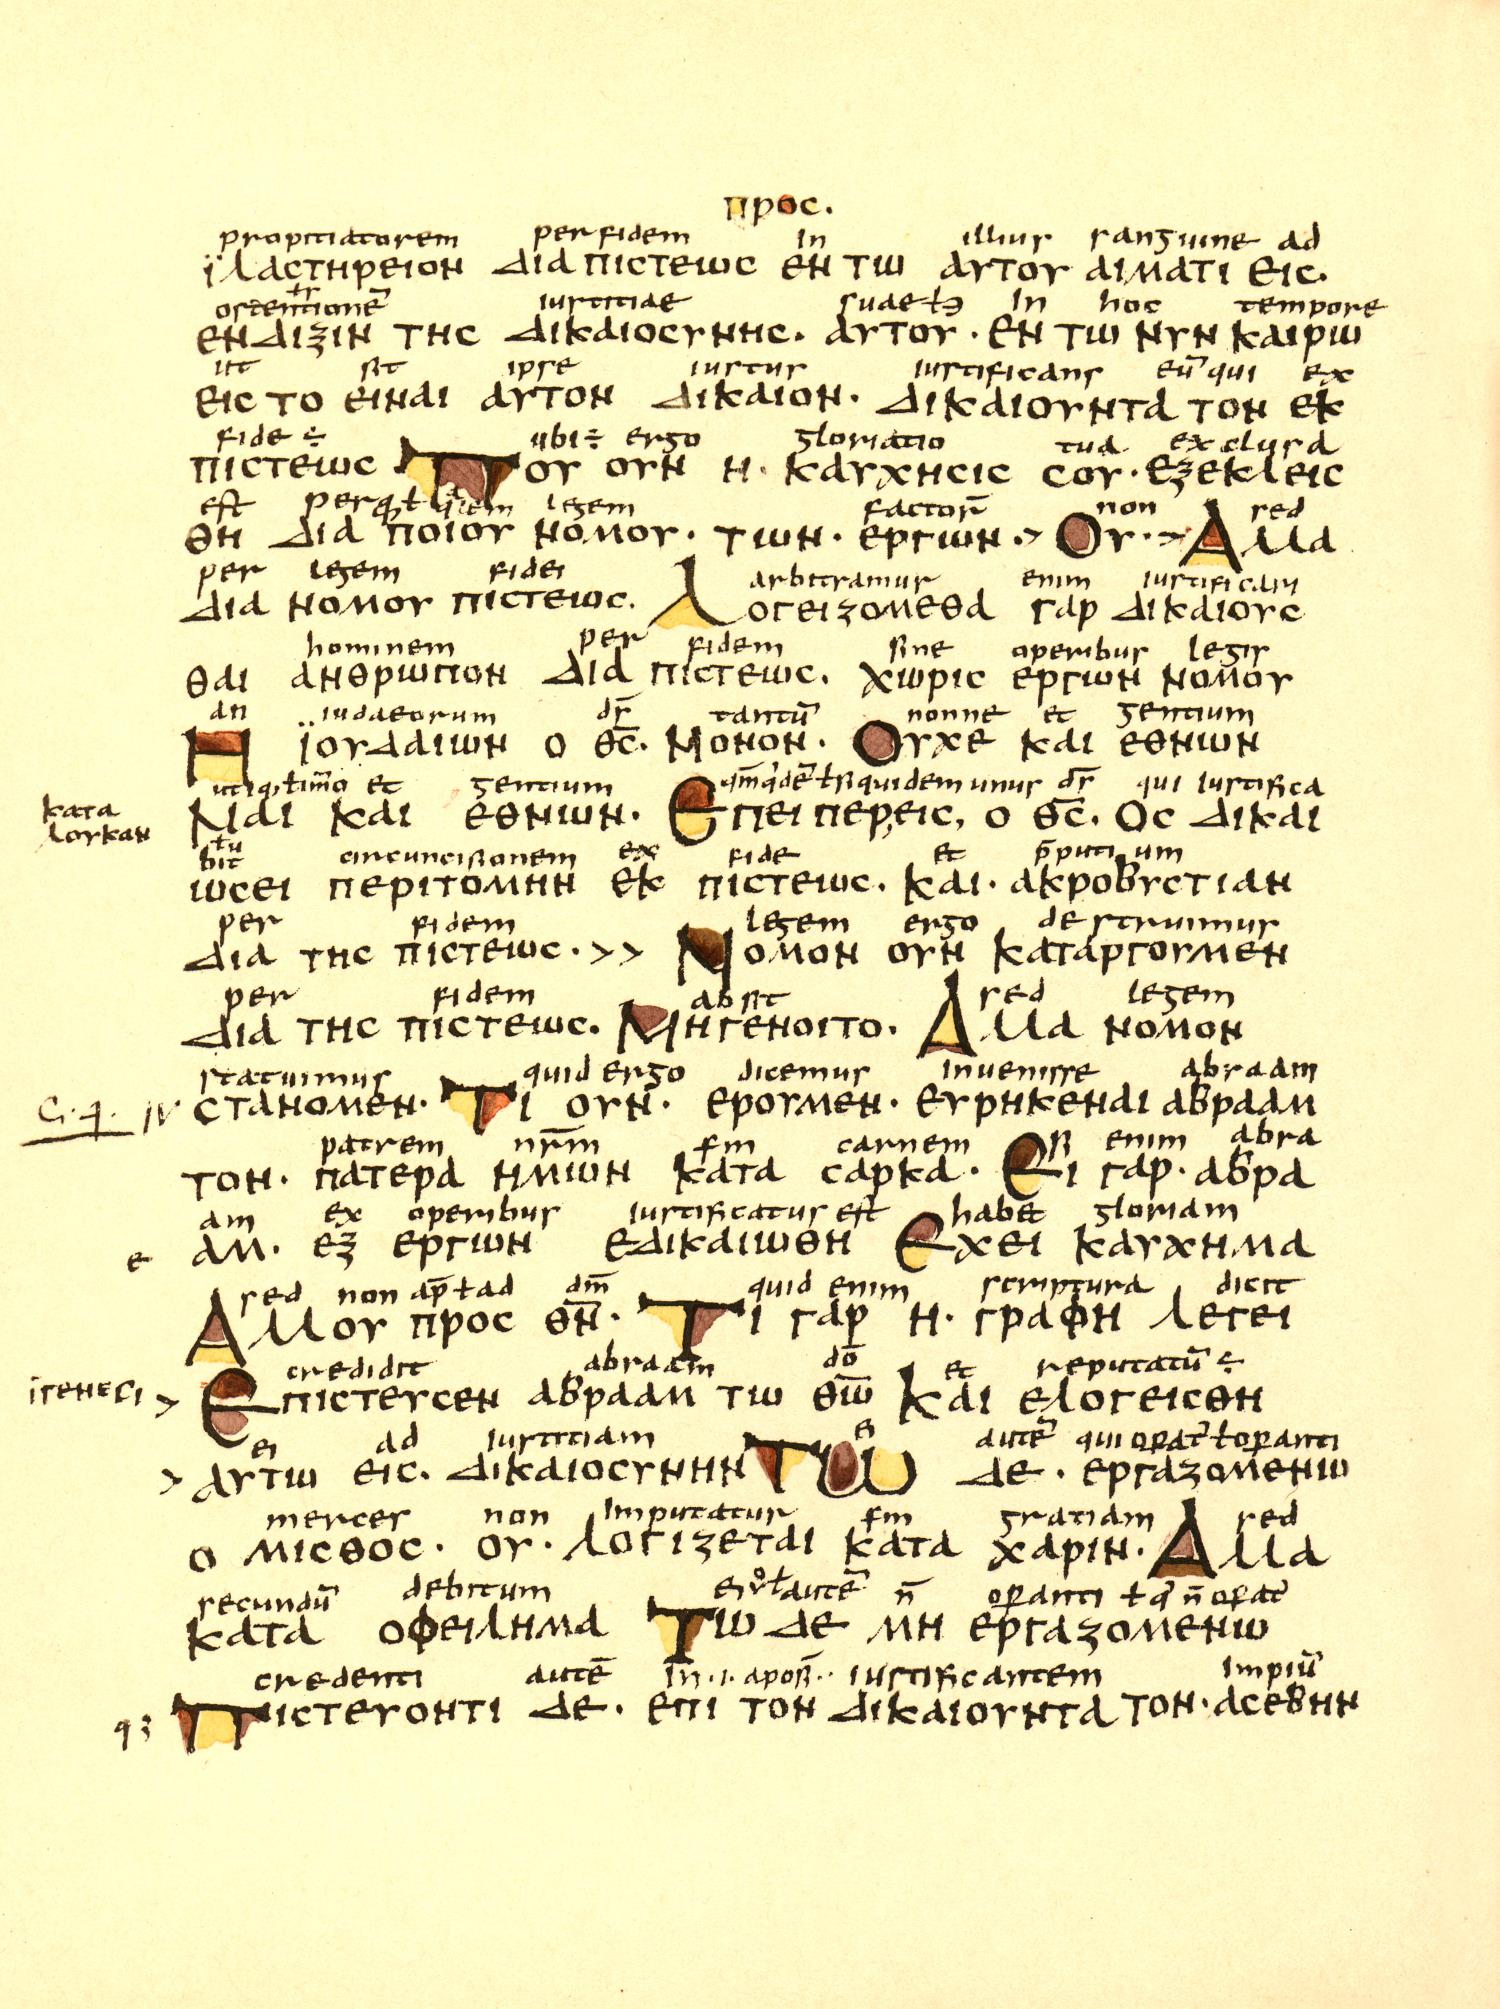 προς.
propitiatorem per fidem in illius sanguine ad
ϊλαστηρειον δια πιστεως εν τω αυτου αιματι εις.
ostentionē iustitiae suae in hoc tempore
ενδιξιν της δικαιοσυνης. αυτου · εν τω νυν καιρω
ut sit ipse iustus iustificans eū qui ex
εις το ειναι αυτον δικαιον · δικαιουντα τον εκ
fide ÷ ubi ÷ ergo gloriatio tua exclusa
πιστεως Που ουν η · καυχησις σου · εξεκλεις
est per legem factorū non sed
θη δια ποιου νομου · των · εργων · > Ου · > Αλλα
per legem fidei arbitramur enim iustificari
δια νομου πιστεως. Λογειζομεθα γαρ δικαιους
hominem per fidem sine operibus legis
θαι ανθρωπον δια πιστεως. χωρις εργων νομου
an iudaeorum ds̄ tantū nonne et gentium
Η ϊουδαιων ο θς̄. Μονον · Ουχε και εθνων
et gentium siquidem unus ds̄ qui iustifica
κατα
λουκαν
Ναι και εθνων · Επειπερ, εις, ο θς̄. Ος δικαι
bit circumcisionem ex fide et p̄putium
ωσει περιτομην εκ πιστεως. και · ακροβυστιαν
per fidem legem ergo destruimus
δια της πιστεως · > > Νομον ουν καταργουμεν
per fidem absit sed legem
δια της πιστεως. Μη γενοιτο. Αλλα νομον
statuimus quid ergo dicemus invenisse abraam
C. 4. IV στανομεν · Τι ουν · ερουμεν · ευρηκεναι αβρααμ
patrem nr̄m scdm carnem si enim abra
τον · πατερα ημων κατα σαρκα · Ει γαρ · αβρα
am ex operibus iustificatus est habet gloriam
ε αμ · εξ εργων εδικαιωθη Εχει καυχημα
sed non ap̄ ł ad dm̄ quid enim scriptura dicit
Αλλ ου προς θν̄ · Τι γαρ η · γραφη λεγει
credidit abraam dō et reputatū ÷
ϊγενεσι > Επιστευσεν αβρααμ τω θω̄ και ελογεισθη
ei ad iustitiam ei autē qui operat̄ ł operanti
> αυτω εις. δικαιοσυνην Τω δε · εργαζομενω
merces non imputatur scdm gratiam sed
ο μισθος · ου · λογιζεται κατα χαριν · Αλλα
secundū debitum ei autē n̄ operanti ł q n̄ operat̄
κατα οφειλημα Τω δε μη εργαζομενω
credenti autē in iustificantem impiū
93 Πιστευοντι δε · επι τον δικαιουντα τον · ασεβην